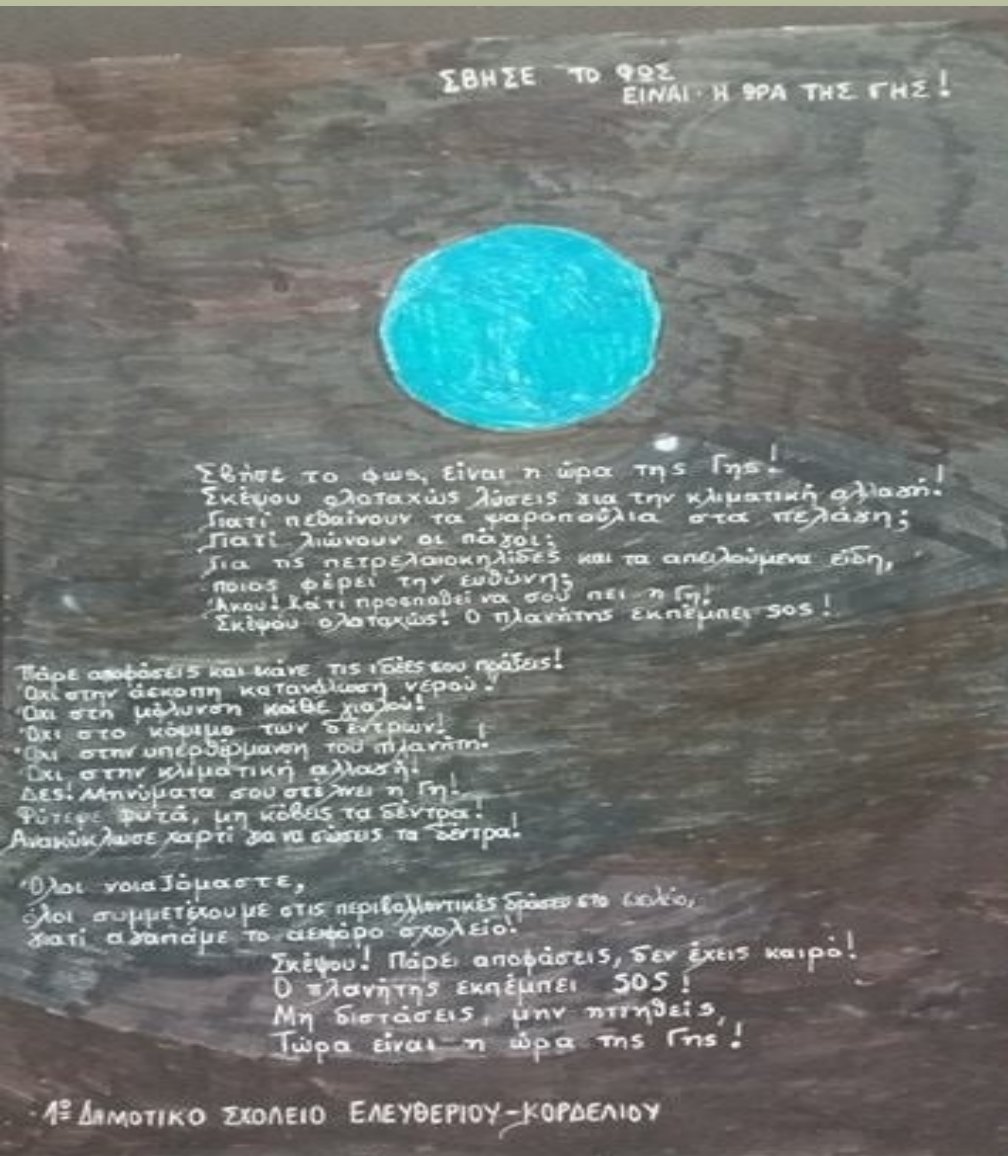 ΣΒΗΣΕ ΤΟ ΦΩΣ
ΕΙΝΑΙ Η ΩΡΑ ΤΗΣ ΓΗΣ!
Σβήσε το φως, είναι η ώρα της Γης!
Σκέψου ολοταχώς λύσεις για την κλιματική αλλαγή!
Γιατί πεθαίνουν τα ψαροπούλια στα πελάγη;
Γιατί λιώνουν οι πάγοι;
Για τις πετρελαιοκηλίδες και τα απειλούμενα είδη,
ποιος φέρει την ευθύνη;
Άκου! Κάτι προσπαθεί να σου πει η Γη!
Σκέψου ολοταχώς! Ο πλανήτης εκπέμπει SOS!
Πάρε αποφάσεις και κάνε τις ιδέες σου πράξεις!
Όχι στην άσκοπη κατανάλωση νερού!
Όχι στη μόλυνση κάθε γιαλού!
Όχι στο κόψιμο των δέντρων!
Όχι στην υπερθέρμανση του πλανήτη!
Όχι στην κλιματική αλλαγή!
Δες! Μηνύματα σου στέλνει η Γη!
Φύτεψε φυτά, μη κόβεις τα δέντρα!
Ανακύκλωσε χαρτί για να σώσεις τα δέντρα!
Όλοι νοιαζόμαστε,
όλοι συμμετέχουμε στις περιβαλλοντικές δράσεις στο σχολείο,
γιατί αγαπάμε το αειφόρο σχολείο!
Σκέψου! Πάρε αποφάσεις, δεν έχεις καιρό!
Ο πλανήτης εκπέμπει SOS!
Μη διστάσεις, μην ηττηθείς,
Τώρα είναι η ώρα της Γης!
1º ΔΗΜΟΤΙΚΟ ΣΧΟΛΕΙΟ ΕΛΕΥΘΕΡΙΟΥ-ΚΟΡΔΕΛΙΟΥ